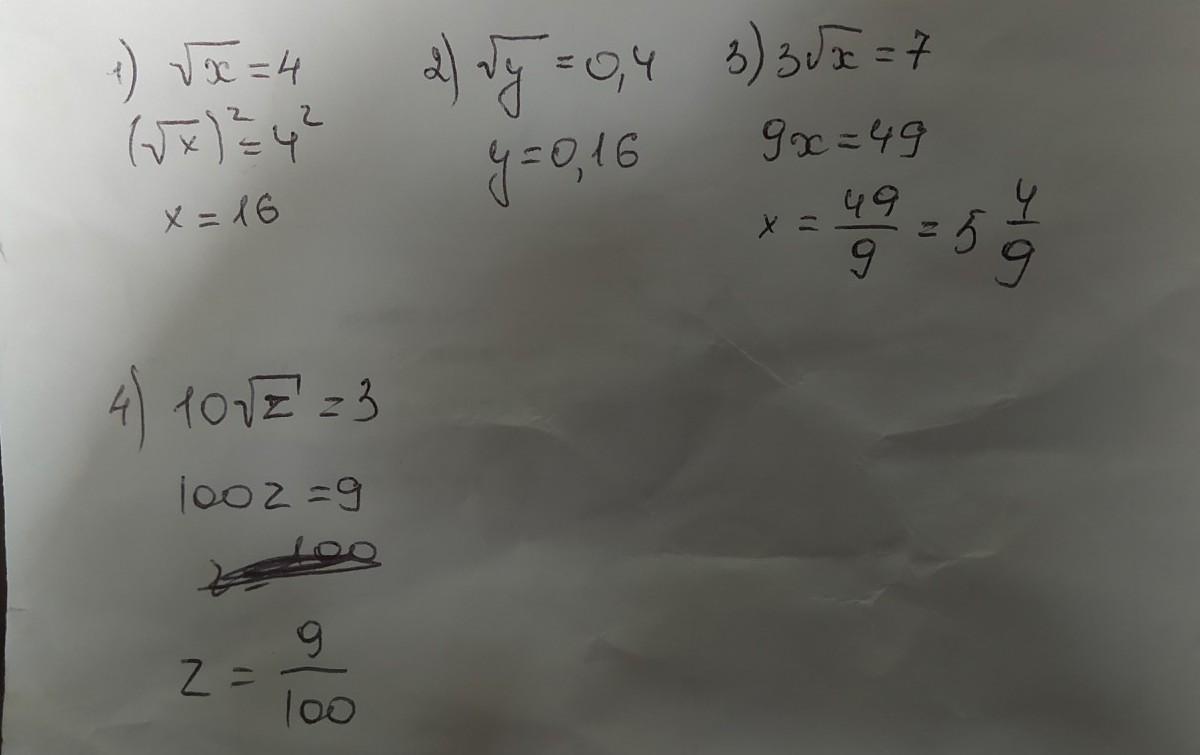 1) √x = 4
(√x)² = 4²
x = 16
2) √y = 0,4
y = 0,16
3) 3√x = 7
9x = 49
x = 49/9 = 5 4/9
4) 10√z = 3
100z = 9
z = 9/100